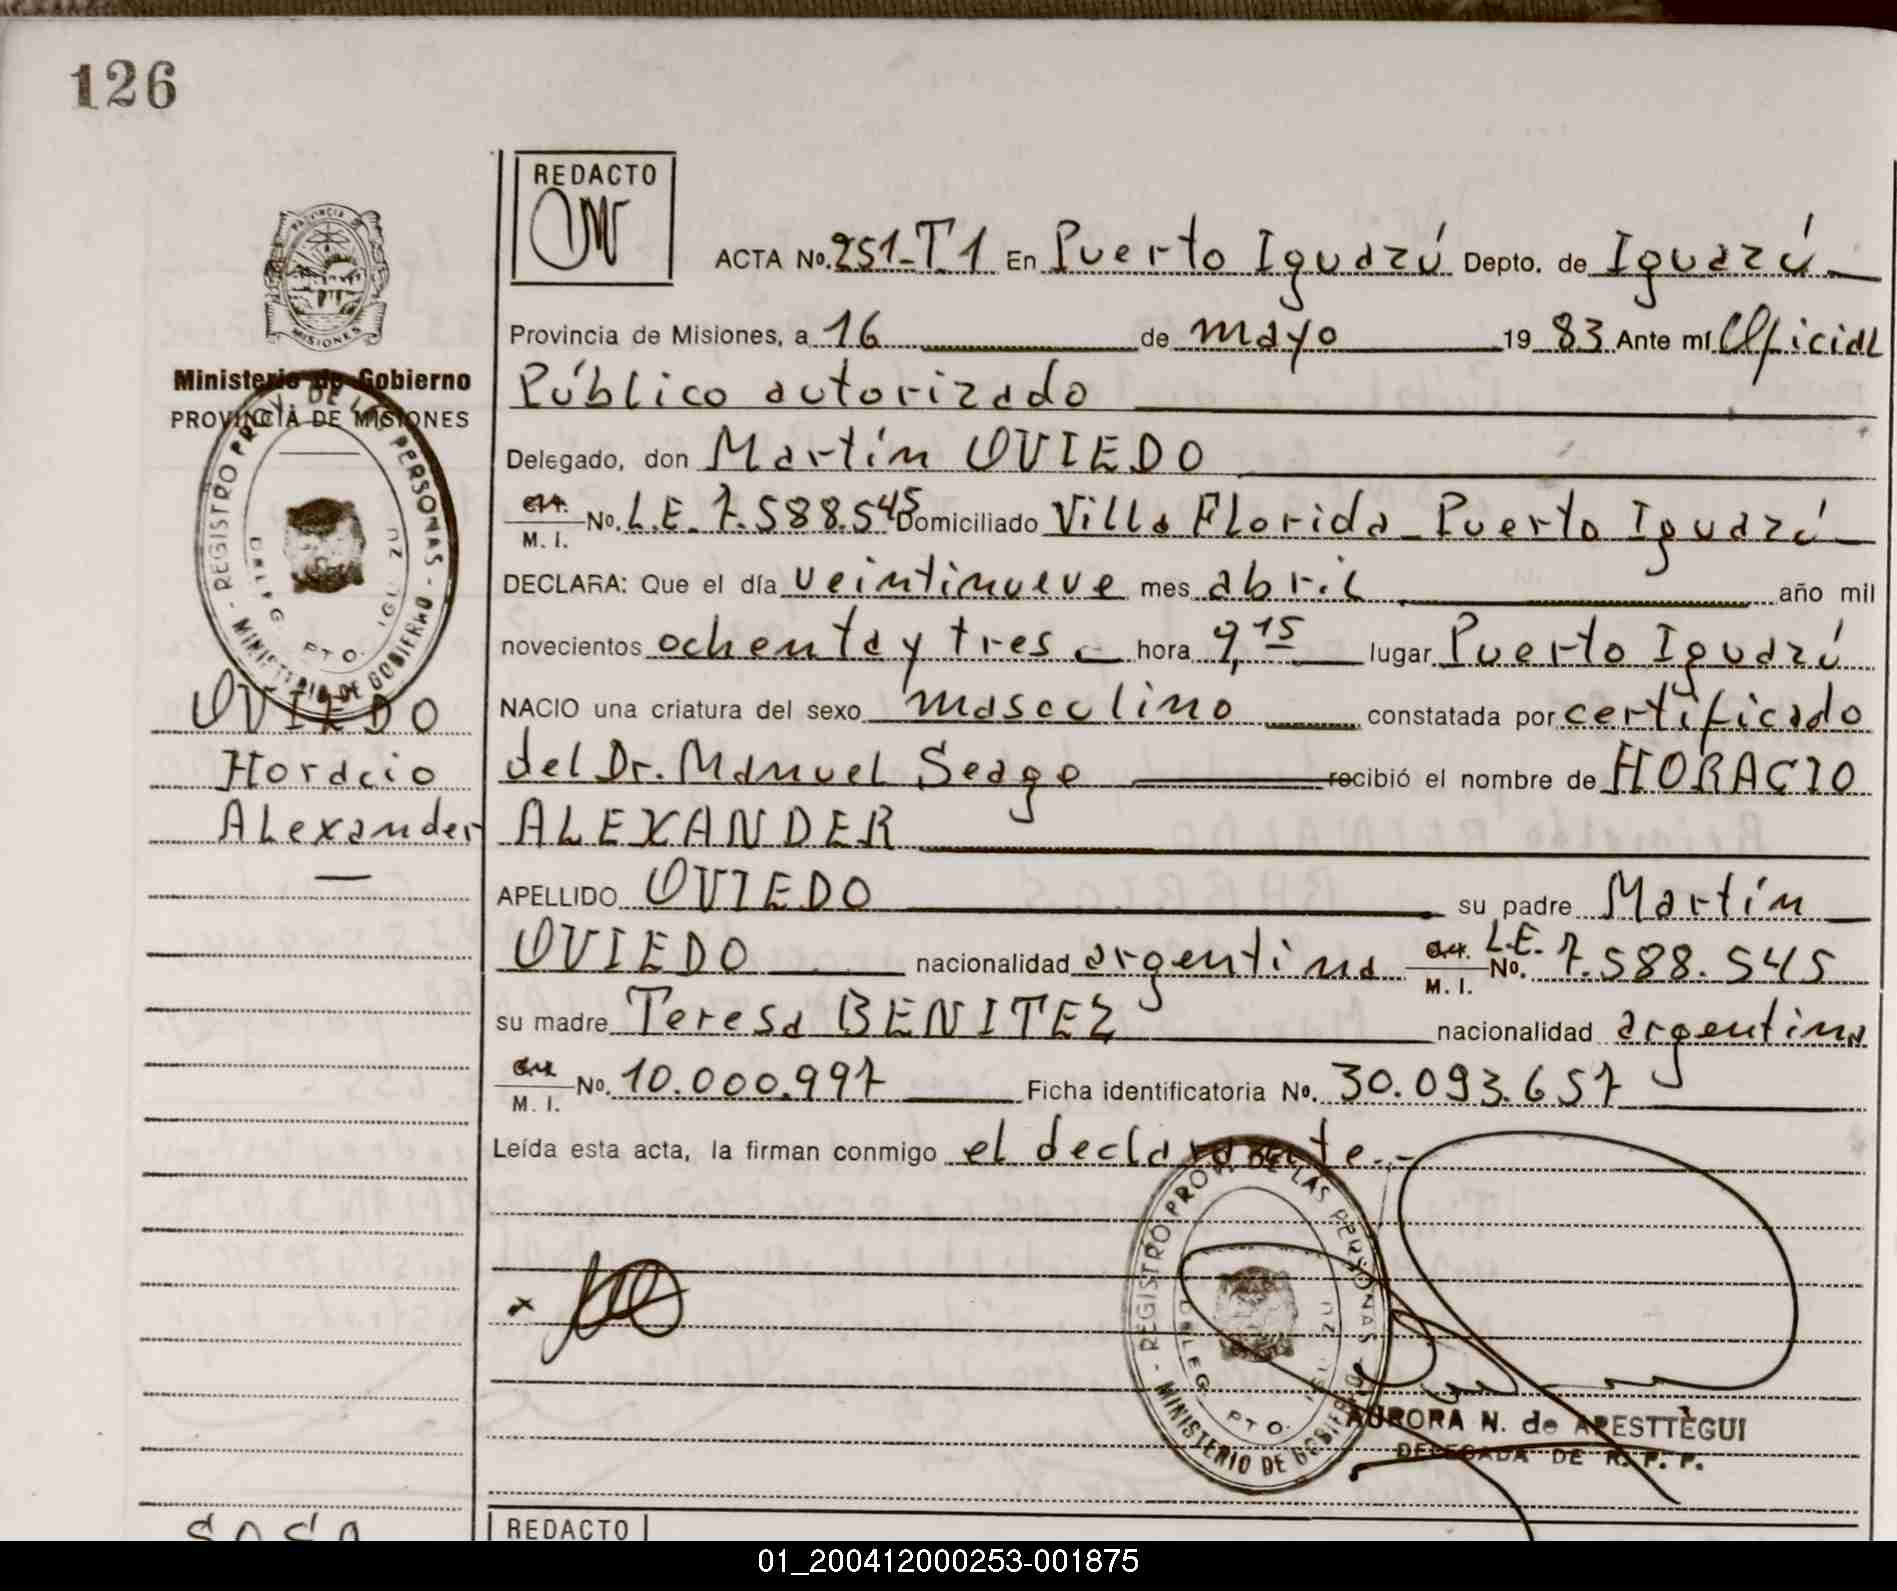 126
REDACTO
ACTA No. 251-T1 En Puerto Iguazú Depto. de Iguazú
Provincia de Misiones, a 16 de mayo 19 83 Ante mí Oficial
Público autorizado
Delegado, don Martín OVIEDO
M. I. No. L.E. 7.588.545 Domiciliado Villa Florida - Puerto Iguazú
DECLARA: Que el día veintinueve mes abril año mil
novecientos ochenta y tres hora 9,15 lugar Puerto Iguazú
NACIO una criatura del sexo masculino constatada por certificado
del Dr. Manuel Seage recibió el nombre de HORACIO
ALEXANDER
APELLIDO OVIEDO su padre Martín
OVIEDO nacionalidad argentina M. I. L.E. No. 7.588.545
su madre Teresa BENITEZ nacionalidad argentina
M. I. No. 10.000.997 Ficha identificatoria No. 30.093.657
Leída esta acta, la firman conmigo el declarante.-
PROVINCIA DE
MISIONES
Ministerio de Gobierno
PROVINCIA DE MISIONES
REGISTRO PROV. DE LAS PERSONAS - MINISTERIO DE GOBIERNO
DELEG. PTO. IGUAZU
OVIEDO
Horacio
Alexander
REGISTRO PROV. DE LAS PERSONAS
MINISTERIO DE GOBIERNO
DELEG. PTO.
AURORA N. de APESTTEGUI
DELEGADA DE R. P. P.
SOSA
REDACTO
01_200412000253-001875